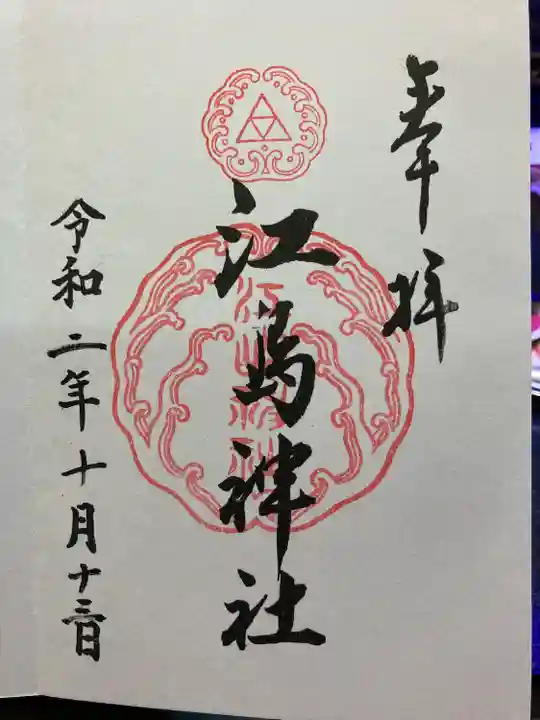 奉拝
江島神社
令和二年十月十三日